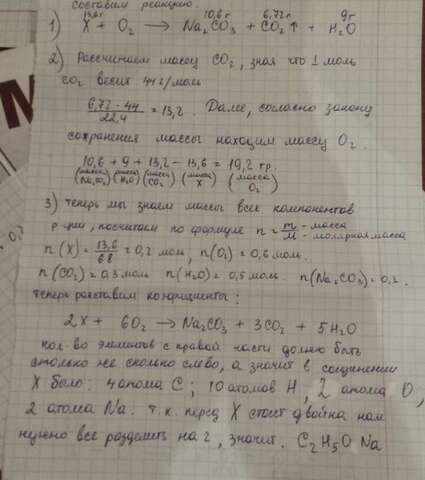 составим реакцию.
13,6г 10,6г 6,72л 9г
1) X + O₂ → Na₂CO₃ + CO₂↑ + H₂O
2) Рассчитаем массу CO₂, зная что 1 моль
CO₂ весит 44г/моль
6,72 · 44 / 22,4 = 13,2. Далее, согласно закону
сохранения массы находим массу O₂.
10,6 + 9 + 13,2 - 13,6 = 19,2 гр.
(масса Na₂CO₃) (масса H₂O) (масса CO₂) (масса X) (масса O₂)
3) теперь мы знаем массы всех компонентов
р-ции, посчитаем по формуле n = m - масса / M - молярная масса
n(X) = 13,6 / 68 = 0,2 моль, n(O₂) = 0,6 моль.
n(CO₂) = 0,3 моль n(H₂O) = 0,5 моль. n(Na₂CO₃) = 0,1.
теперь расставим коэфициенты:
2X + 6O₂ → Na₂CO₃ + 3CO₂ + 5H₂O
кол-во элементов с правой части должно быть
столько же сколько слево, а значит в соединении
X было: 4 атома C; 10 атомов H, 2 атома O,
2 атома Na. т.к. перед X стоит двойка нам
нужно все разделить на 2, значит. C₂H₅O Na